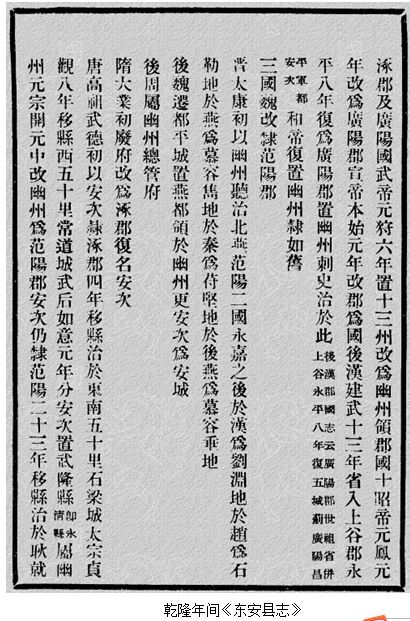 涿郡及廣陽國武帝元狩六年置十三州改爲幽州領郡國十昭帝元鳳元
年改爲廣陽郡宣帝本始元年改郡爲國後漢建武十三年省入上谷郡永
平八年復爲廣陽郡置幽州刺史治於此後漢郡國志云廣陽郡世祖省併上谷永平八年復五城薊廣陽昌
平軍都安次和帝復置幽州隸如舊
三國魏改隸范陽郡
晉太康初以幽州聽治北燕范陽二國永嘉之後於漢爲劉淵地於趙爲石
勒地於燕爲慕容雋地於秦爲苻堅地於後燕爲慕容垂地
後魏遷都平城置燕都領於幽州更安次爲安城
後周屬幽州總管府
隋大業初廢府改爲涿郡復名安次
唐高祖武德初以安次隸涿郡四年移縣治於東南五十里石梁城太宗貞
觀八年移縣西五十里常道城武后如意元年分安次置武隆縣卽永清縣屬幽
州元宗開元中改幽州爲范陽郡安次仍隸范陽二十三年移縣治於耿就
乾隆年间《东安县志》